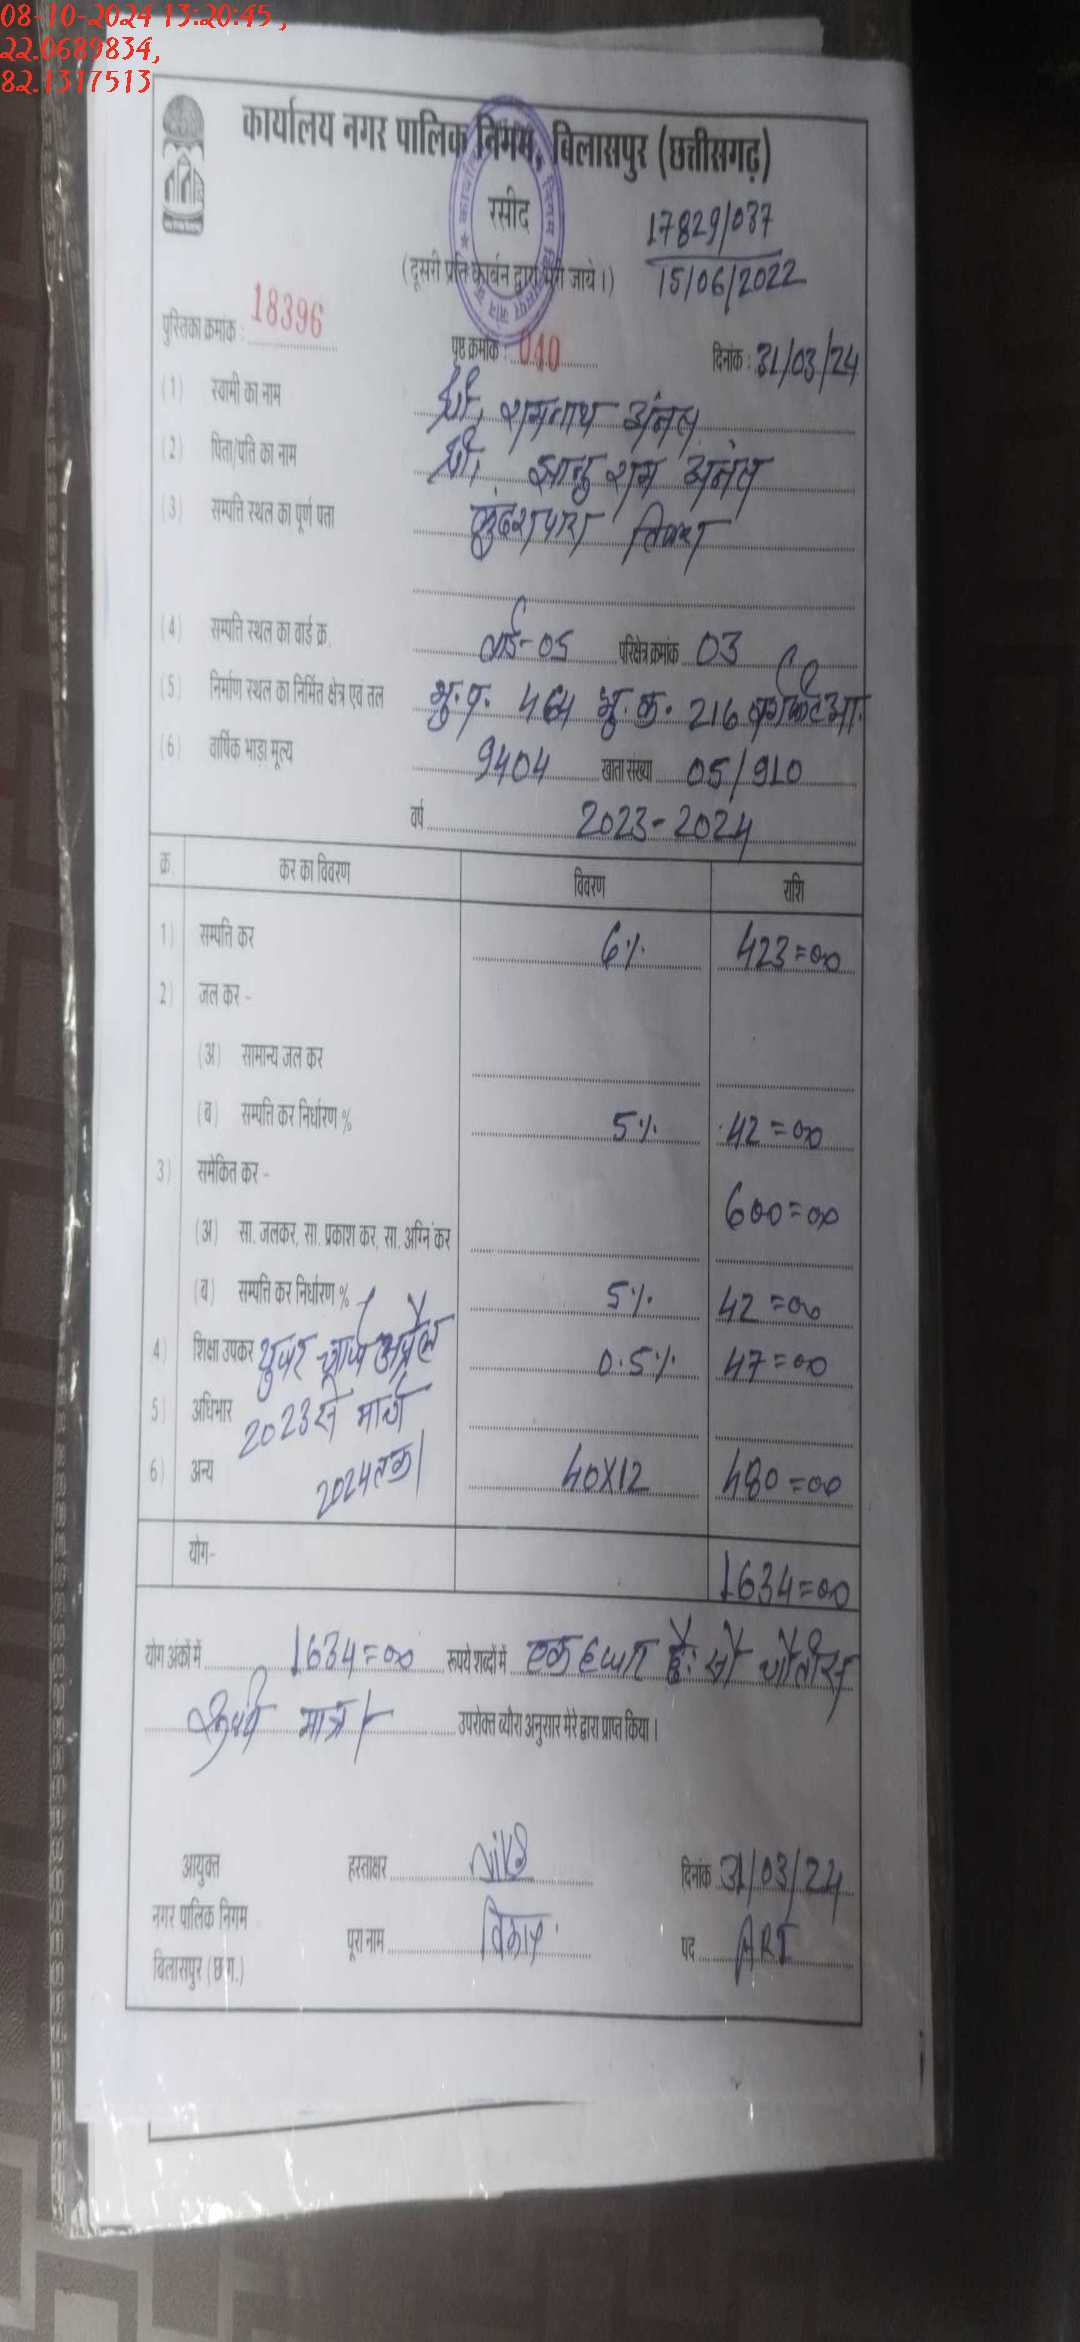 08-10-2024 13:20:45 ,
22.0689834,
82.1317513
कार्यालय नगर पालिक निगम, बिलासपुर (छत्तीसगढ़)
रसीद
17829/037
(दूसरी प्रति कार्बन द्वारा भरी जाये।)
15/06/2022
पुस्तिका क्रमांक : 18396 पृष्ठ क्रमांक : 040 दिनांक : 31/03/24
(1) स्वामी का नाम श्री, रामनाथ अंनत
(2) पिता/पति का नाम श्री, झाडु राम अंनत
(3) सम्पत्ति स्थल का पूर्ण पता कुंदरापारा तिफरा
(4) सम्पत्ति स्थल का वार्ड क्र. वार्ड-05 परिक्षेत्र क्रमांक 03
(5) निर्माण स्थल का निर्मित क्षेत्र एवं तल भु.त. 464 भु.क. 216 वर्गफिट आ.
(6) वार्षिक भाड़ा मूल्य 9404 खाता संख्या 05/910
वर्ष 2023-2024
क्र. कर का विवरण विवरण राशि
1) सम्पत्ति कर 6% 423=00
2) जल कर -
(अ) सामान्य जल कर
(ब) सम्पत्ति कर निर्धारण % 5% 42=00
3) समेकित कर -
600=00
(अ) सा. जलकर, सा. प्रकाश कर, सा. अग्नि कर
(ब) सम्पत्ति कर निर्धारण % 5% 42=00
4) शिक्षा उपकर युजर चार्ज अप्रैल 0.5% 47=00
5) अधिभार 2023 से मार्च
6) अन्य 2024 तक। 40X12 480=00
योग- 1634=00
योग अंकों में 1634=00 रूपये शब्दों में एक हजार छै: सौ चौतीस
रूपये मात्र। उपरोक्त ब्यौरा अनुसार मेरे द्वारा प्राप्त किया ।
आयुक्त हस्ताक्षर दिनांक 31/03/24
नगर पालिक निगम पूरा नाम विकास पद ARI
बिलासपुर (छ.ग.)